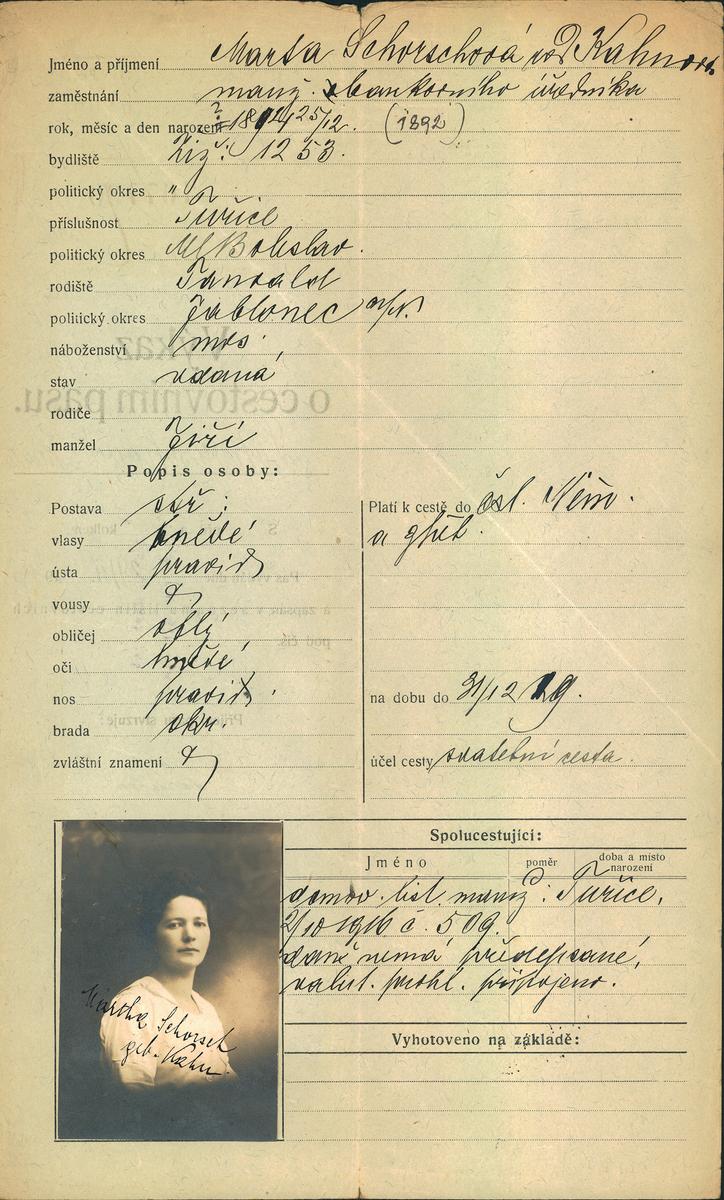 Jméno a příjmení Marta Schorschová roz. Kahnová
zaměstnání manž. bankovního úředníka
rok, měsíc a den narození 25/12. (1892)
bydliště Žiž. 1253.
politický okres "
příslušnost Tuřice
politický okres Ml Boleslav.
rodiště Tanvald
politický okres Jablonec n/N.
náboženství mos.
stav vdaná
rodiče
manžel Jiří
Popis osoby:
Postava stř.
vlasy hnědé
ústa pravid.
vousy
obličej oblý
oči hnědé
nos pravid.
brada okr.
zvláštní znamení
Platí k cestě do čsl. Něm.
a
na dobu do 31/12 19.
účel cesty svatební cesta.
Spolucestující:
Jméno poměr doba a místo narození
domov. list. manž. Tuřice,
2/10 1916 č. 509.
daně nemá předepsané,
valut. prohl. připojeno.
Vyhotoveno na základě:
Martha Schorsch
geb. Kahn
Výkaz
o cestovním pasu.